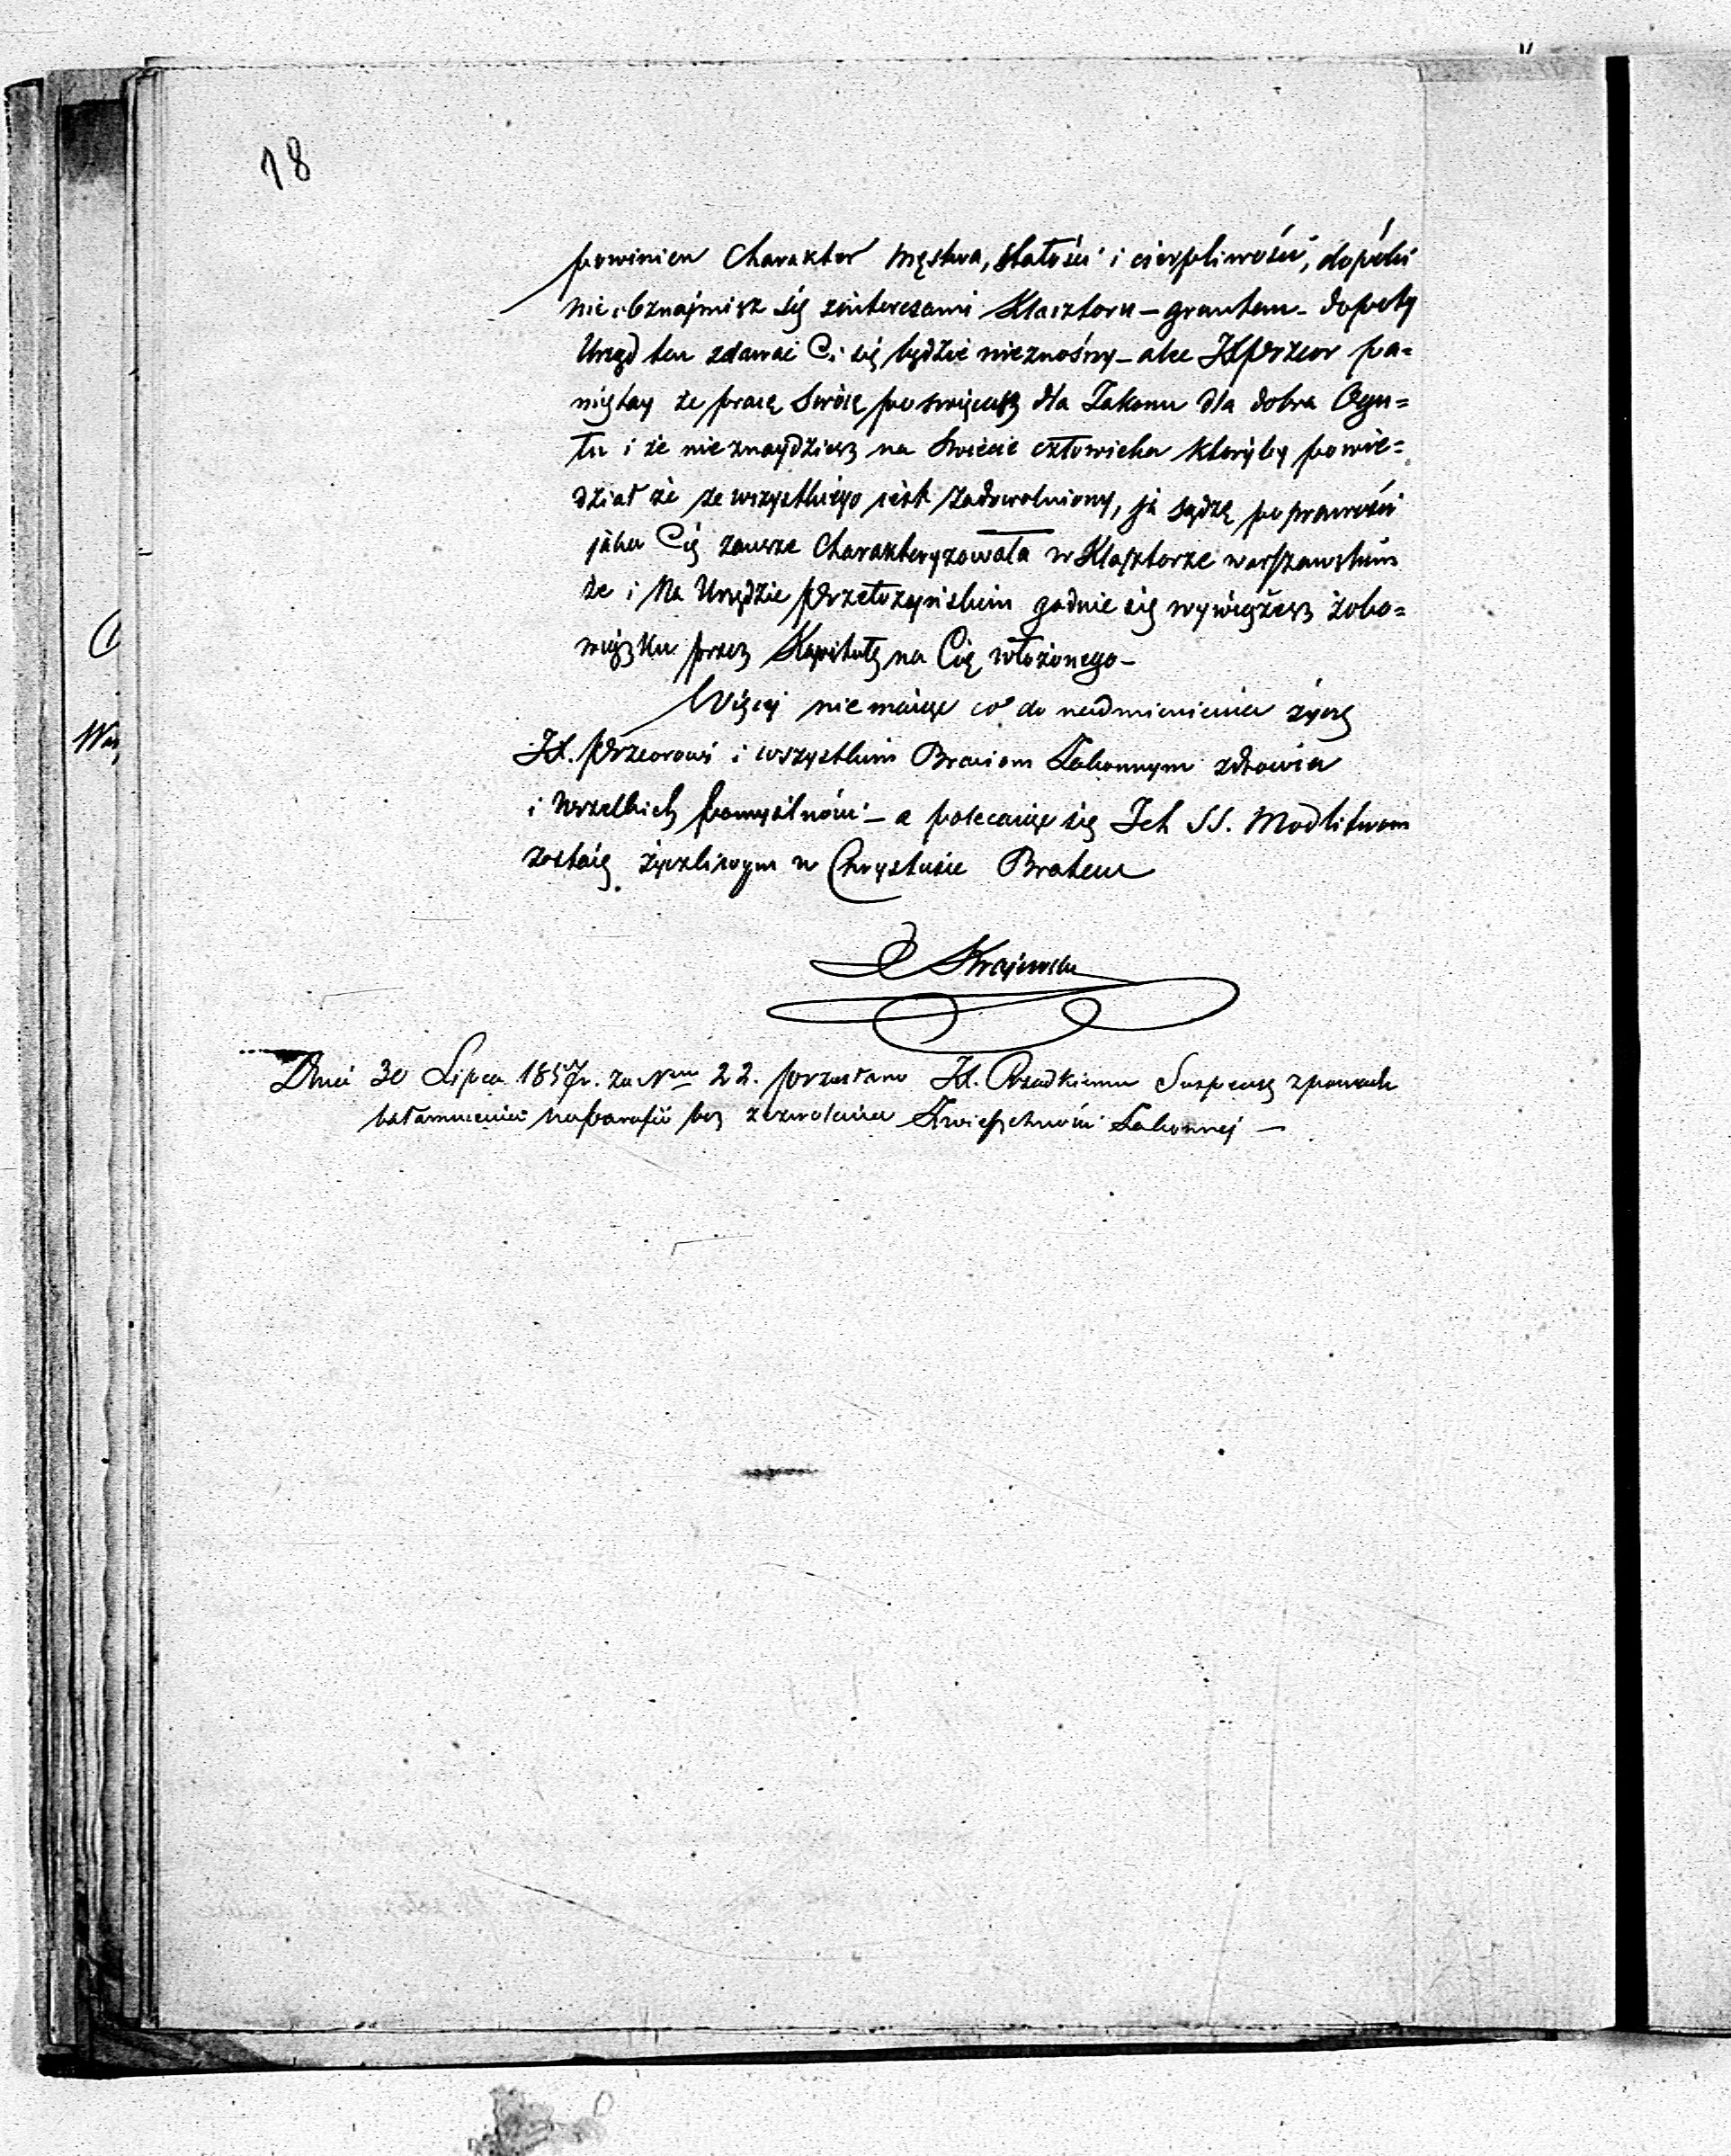 18
powinien Charakter męstwa, stałości i cierpliwości, dopóki
nieobznajmisz się zinteresami Klasztoru – gruntem – dopoty
Urząd ten zdawać Ci się będzie nieznośny – ale JX Przeor pa=
miętay że pracę Swóię poswięcasz dla Zakonu dla dobra Ogu=
łu i że nie znaydziesz na Swiecie człowieka któryby powie=
dział że ze wszystkiego iest zadowolniony, ja sądzę po prawości
jaka Cię zawsze Charakteryzowała w Klasztorze warszawskim
że i Na Urzędzie Przełożeńskim godnie się wywiążesz zobo=
wiązku przez Kapitułę na Cię włożonego –
Więcej nie maiąc co do nadmienienia życzę
JX. Przeorowi i wszystkim Braciom Zakonnym zdrowia
i wszelkich pomyślności – a polecaiąc się Ich SS. Modlitwom
zostaię życzliwym w Chrystusie Bratem
Krajewski
Dnia 30 Lipca 1857 r. za Nrem 22. przesłano JX. Suspensę zpowodu
bałamucenia naparafii bez zezwolenia Zwierzchności Zakonnej –